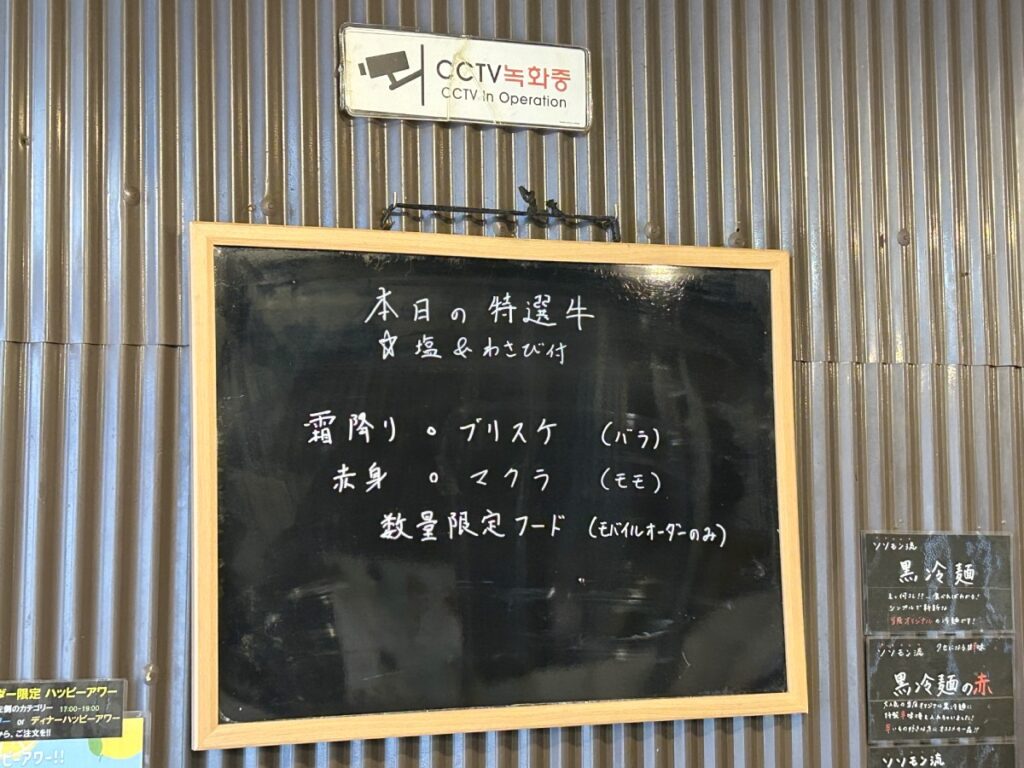 CCTV녹화중
CCTV In Operation
本日の特選牛
☆ 塩&わさび付
霜降り。ブリスケ (バラ)
赤身 。マクラ (モモ)
数量限定フード (モバイルオーダーのみ)
ダー限定 ハッピーアワー
左側のカテゴリー 17:00-19:00
ー or ディナーハッピーアワー
から、ご注文を!!
ピーアワー!!
ソソモン流
黒冷麺
シンプルで斬新な
当店オリジナルの冷麺です!
ソソモン流
黒冷麺の赤
ソソモン流